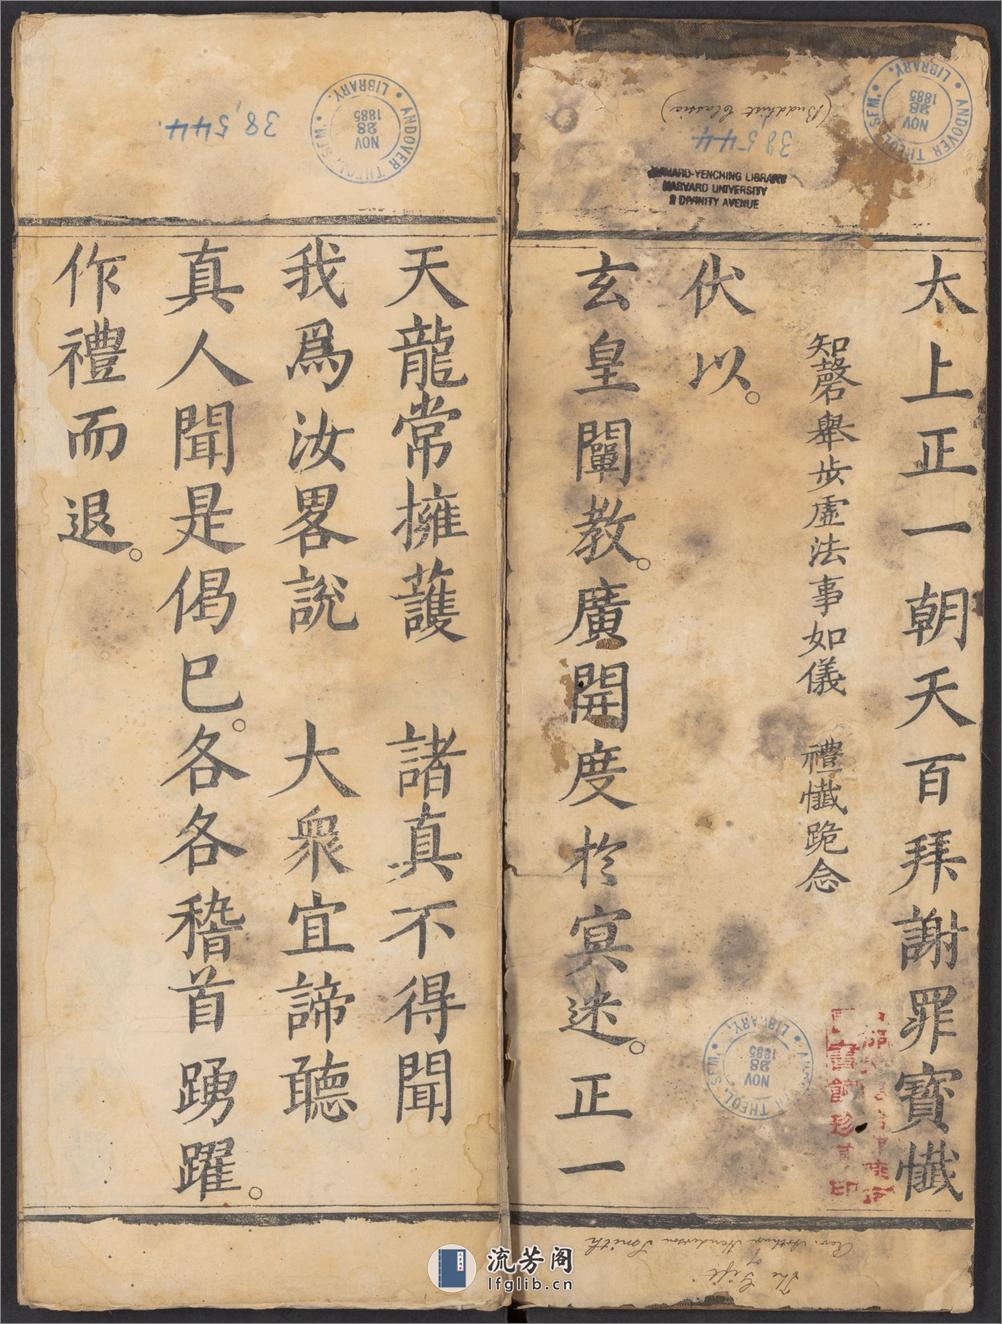 太上正一朝天百拜謝罪寶懺
知磬舉步虛法事如儀 禮懺跪念
伏以。
玄皇闡教。廣開度於冥迷。正一
天龍常擁護 諸真不得聞
我爲汝畧說 大衆宜諦聽
真人聞是偈已。各各稽首踴躍。
作禮而退。
ANDOVER THEOL. SEM. LIBRARY.
NOV 28 1885
38544
(Buddhist Classic)
38544
ANDOVER THEOL. SEM. LIBRARY.
NOV 28 1885
HARVARD-YENCHING LIBRARY
HARVARD UNIVERSITY
2 DIVINITY AVENUE
ANDOVER THEOL. SEM. LIBRARY.
NOV 28 1885
The Gift of
Rev. Arthur Henderson Smith
流芳阁
lfglib.cn